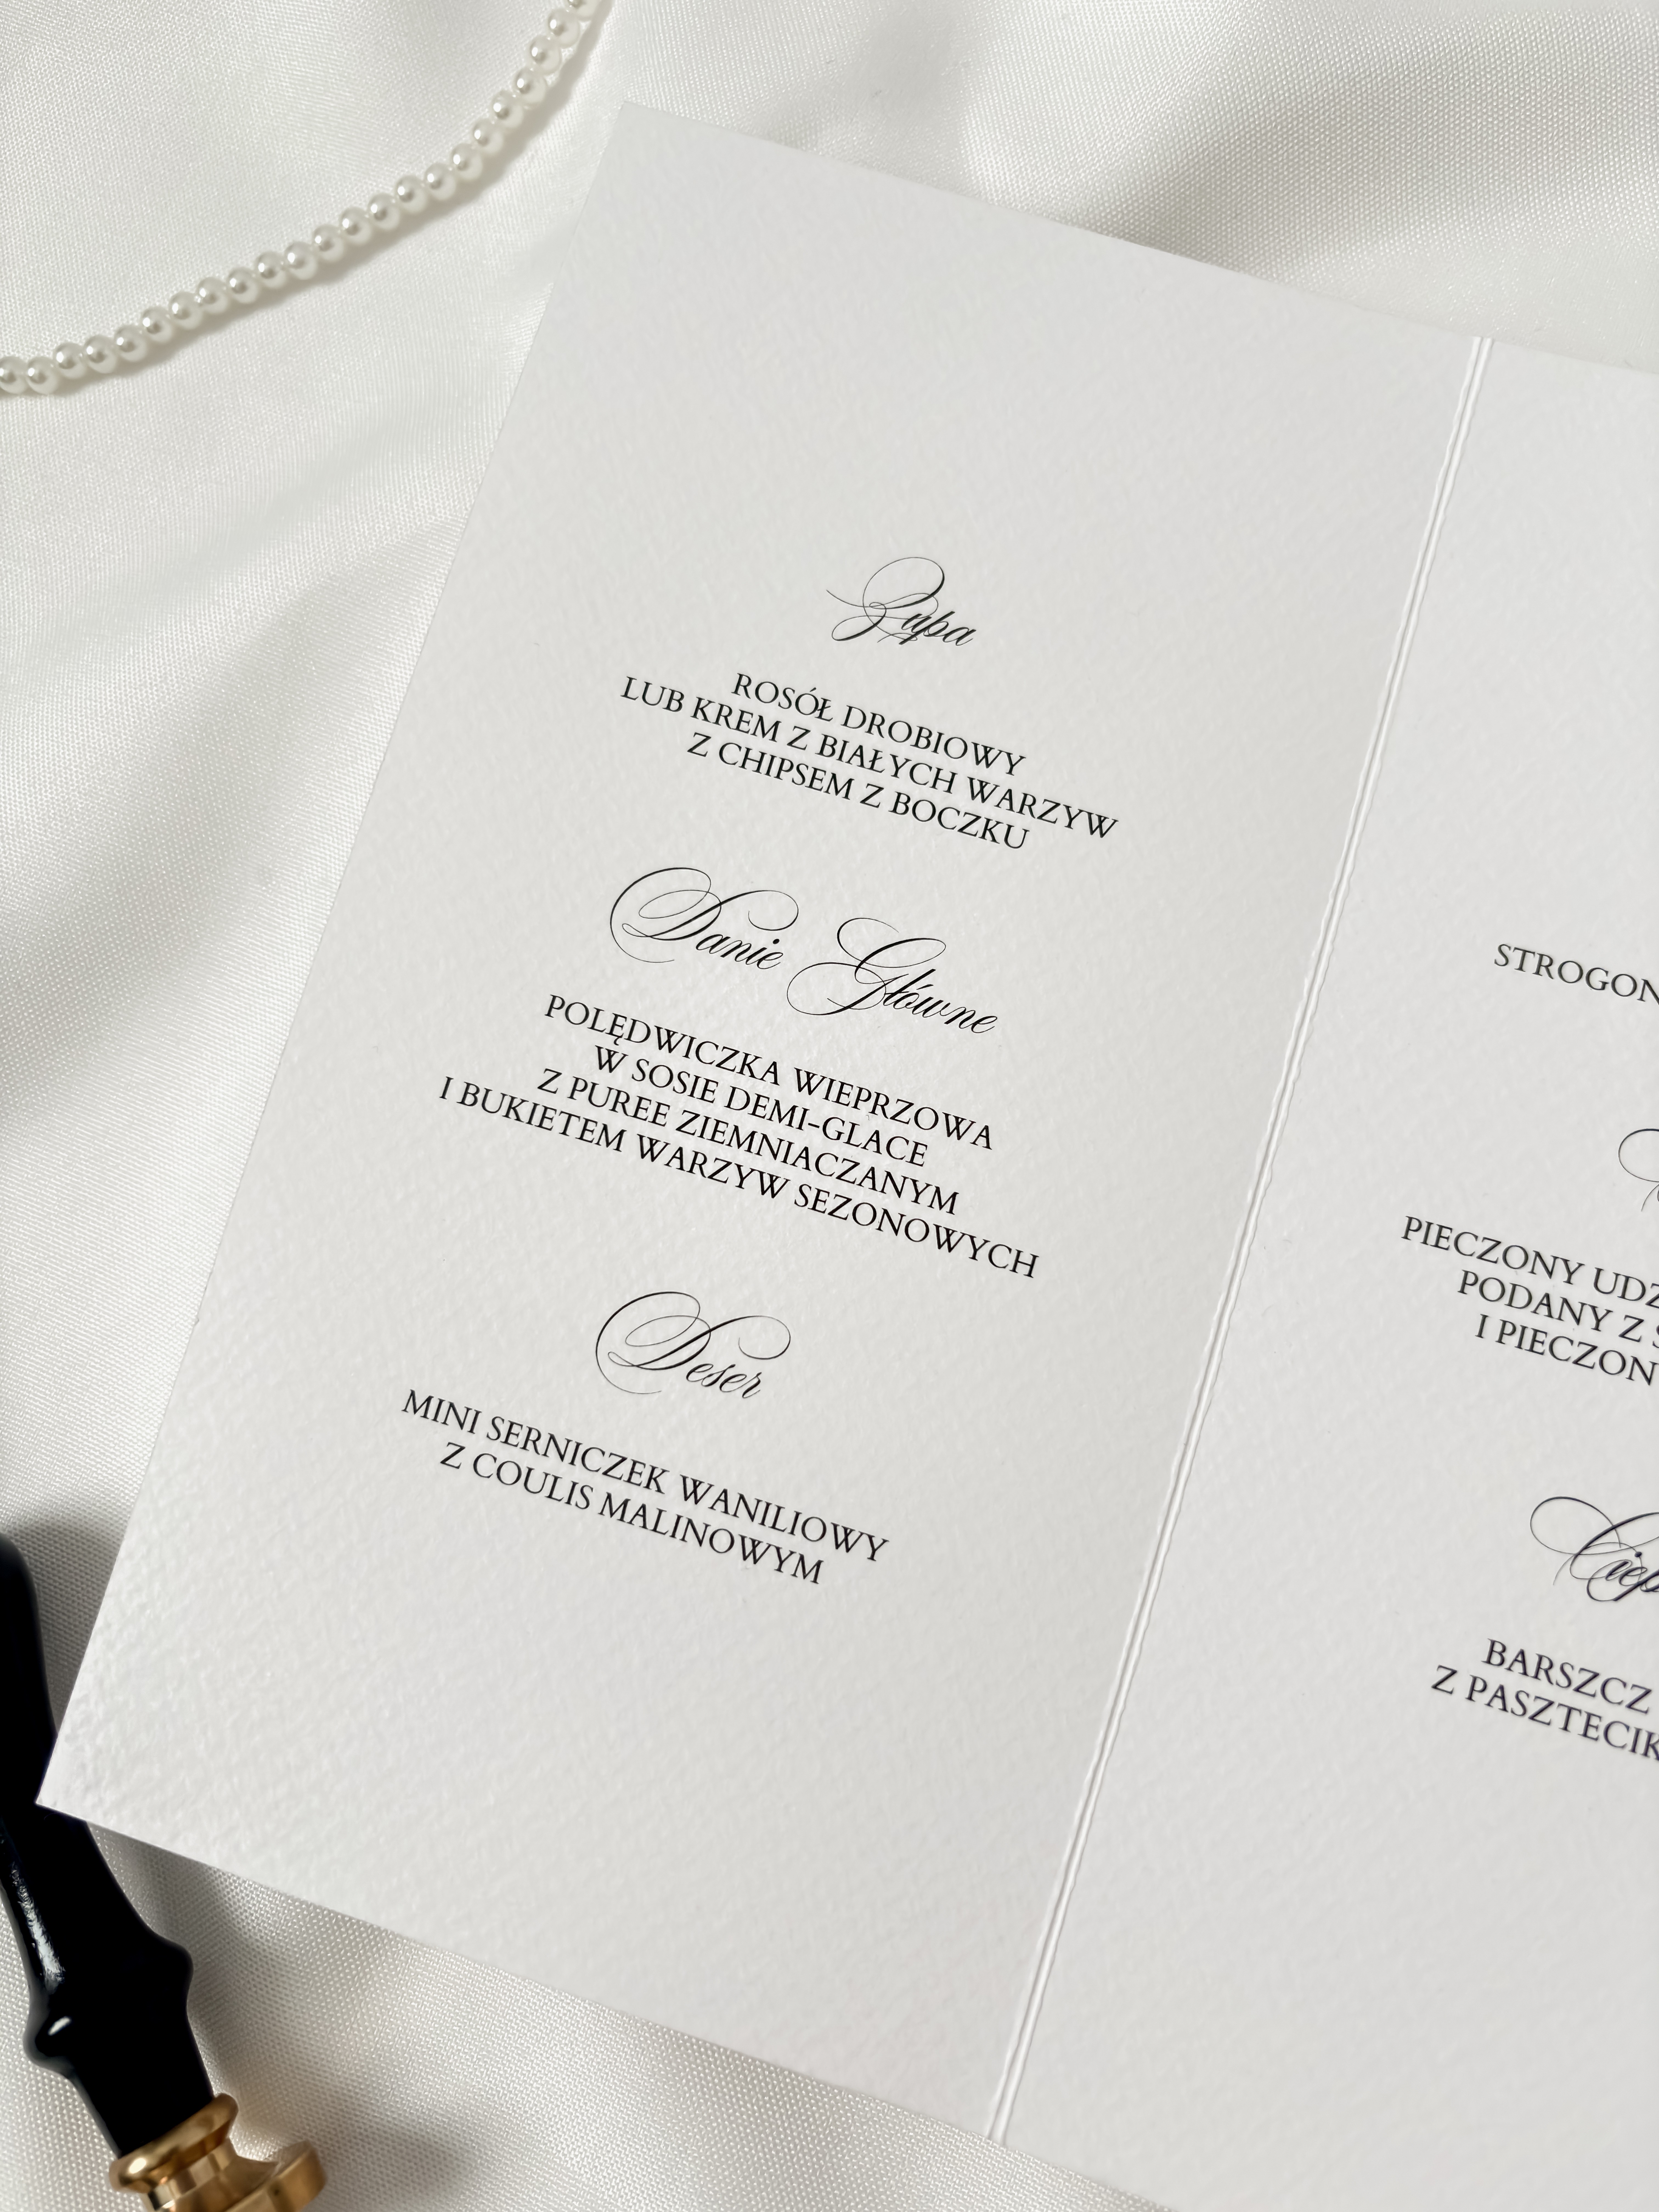 Zupa
ROSÓŁ DROBIOWY
LUB KREM Z BIAŁYCH WARZYW
Z CHIPSEM Z BOCZKU
Danie Główne
POLĘDWICZKA WIEPRZOWA
W SOSIE DEMI-GLACE
Z PUREE ZIEMNIACZANYM
I BUKIETEM WARZYW SEZONOWYCH
Deser
MINI SERNICZEK WANILIOWY
Z COULIS MALINOWYM
STROGON
PIECZONY UDZ
PODANY Z S
I PIECZON
Ciep
BARSZCZ
Z PASZTECIK